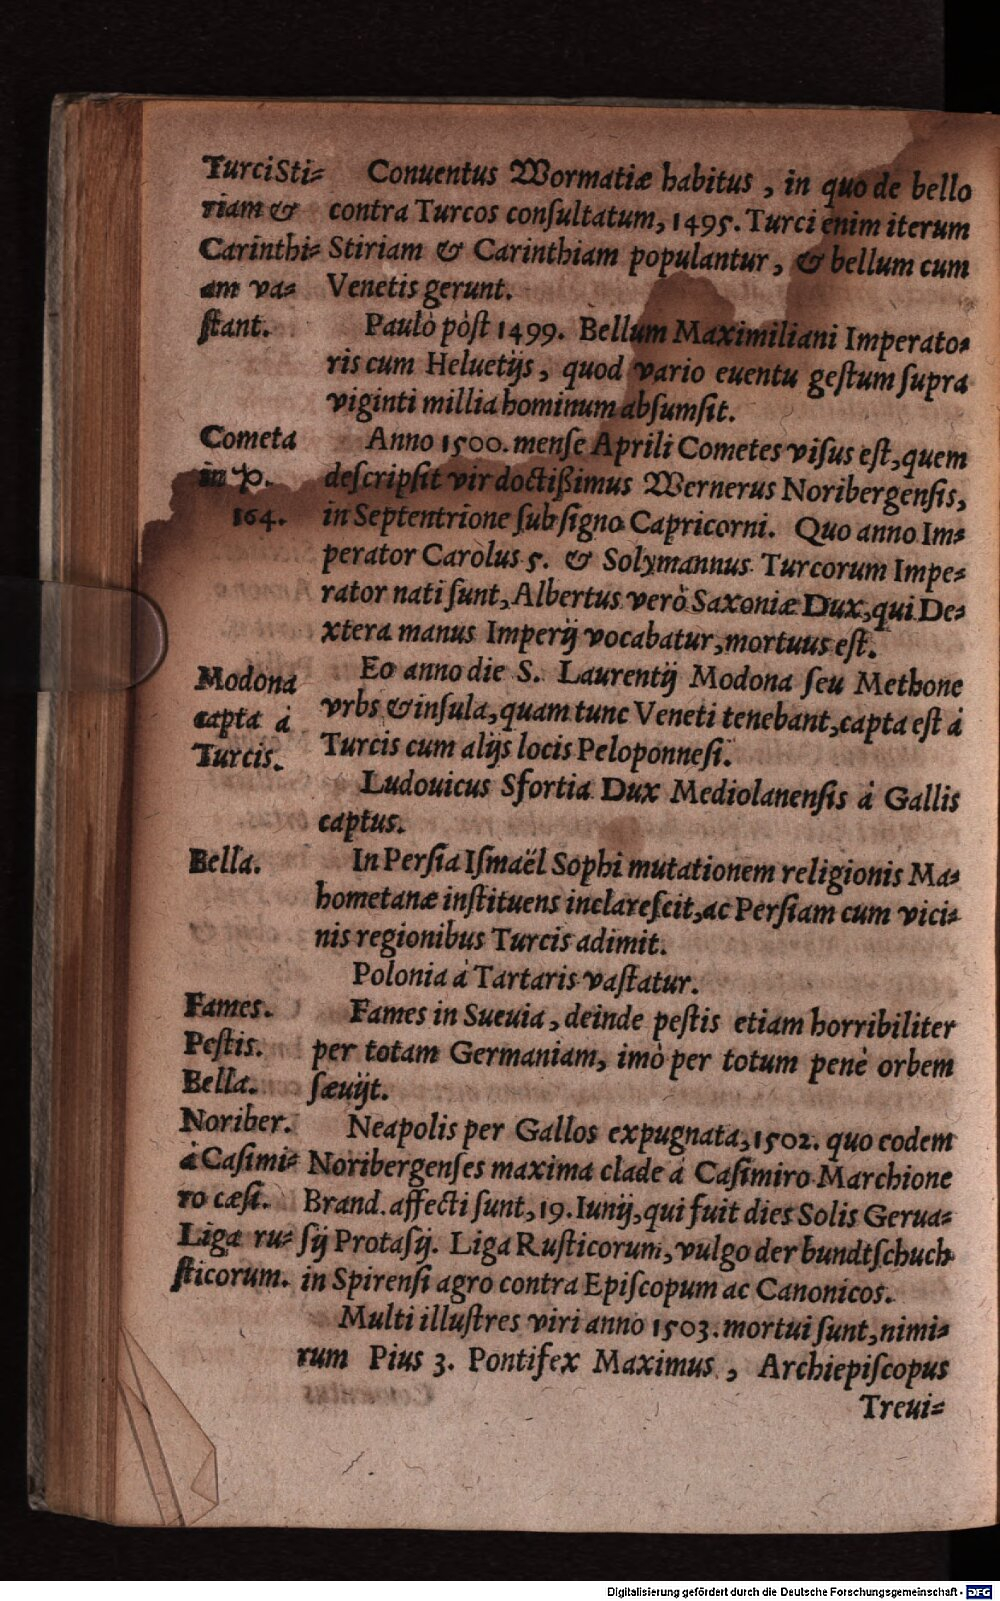 TurciSti⸗
riam &
Carinthi⸗
am va⸗
ſtant.
Conuentus Wormatiæ habitus, in quo de bello
contra Turcos conſultatum, 1495. Turci enim iterum
Stiriam & Carinthiam populantur, & bellum cum
Venetis gerunt.
Paulò pòſt 1499. Bellum Maximiliani Imperato⸗
ris cum Heluetijs, quod vario euentu geſtum ſupra
viginti millia hominum abſumſit.
Cometa
in ♑.
164.
Anno 1500. menſe Aprili Cometes viſus eſt, quem
deſcripſit vir doctißimus Wernerus Noribergenſis,
in Septentrione ſub ſigno Capricorni. Quo anno Im⸗
perator Carolus 5. & Solymannus Turcorum Impe⸗
rator nati ſunt, Albertus verò Saxoniæ Dux, qui De⸗
xtera manus Imperij vocabatur, mortuus eſt.
Modona
capta á
Turcis.
Eo anno die S. Laurentij Modona ſeu Methone
vrbs & inſula, quam tunc Veneti tenebant, capta eſt á
Turcis cum alijs locis Peloponneſi.
Ludouicus Sfortia Dux Mediolanenſis á Gallis
captus.
Bella.
In Perſia Iſmaël Sophi mutationem religionis Ma⸗
hometanæ inſtituens inclareſcit, ac Perſiam cum vici⸗
nis regionibus Turcis adimit.
Polonia á Tartaris vaſtatur.
Fames.
Peſtis.
Bella.
Fames in Sueuia, deinde peſtis etiam horribiliter
per totam Germaniam, imò per totum penè orbem
ſæuijt.
Noriber.
á Caſimi⸗
ro cæſi.
Liga ru⸗
ſticorum.
Neapolis per Gallos expugnata, 1502. quo eodem
Noribergenſes maxima clade á Caſimiro Marchione
Brand. affecti ſunt, 19. Iunij, qui fuit dies Solis Gerua⸗
ſij Protaſij. Liga Ruſticorum, vulgo der bundtſchuch
in Spirenſi agro contra Epiſcopum ac Canonicos.
Multi illuſtres viri anno 1503. mortui ſunt, nimi⸗
rum Pius 3. Pontifex Maximus, Archiepiſcopus
Treui⸗
Digitalisierung gefördert durch die Deutsche Forschungsgemeinschaft - DFG